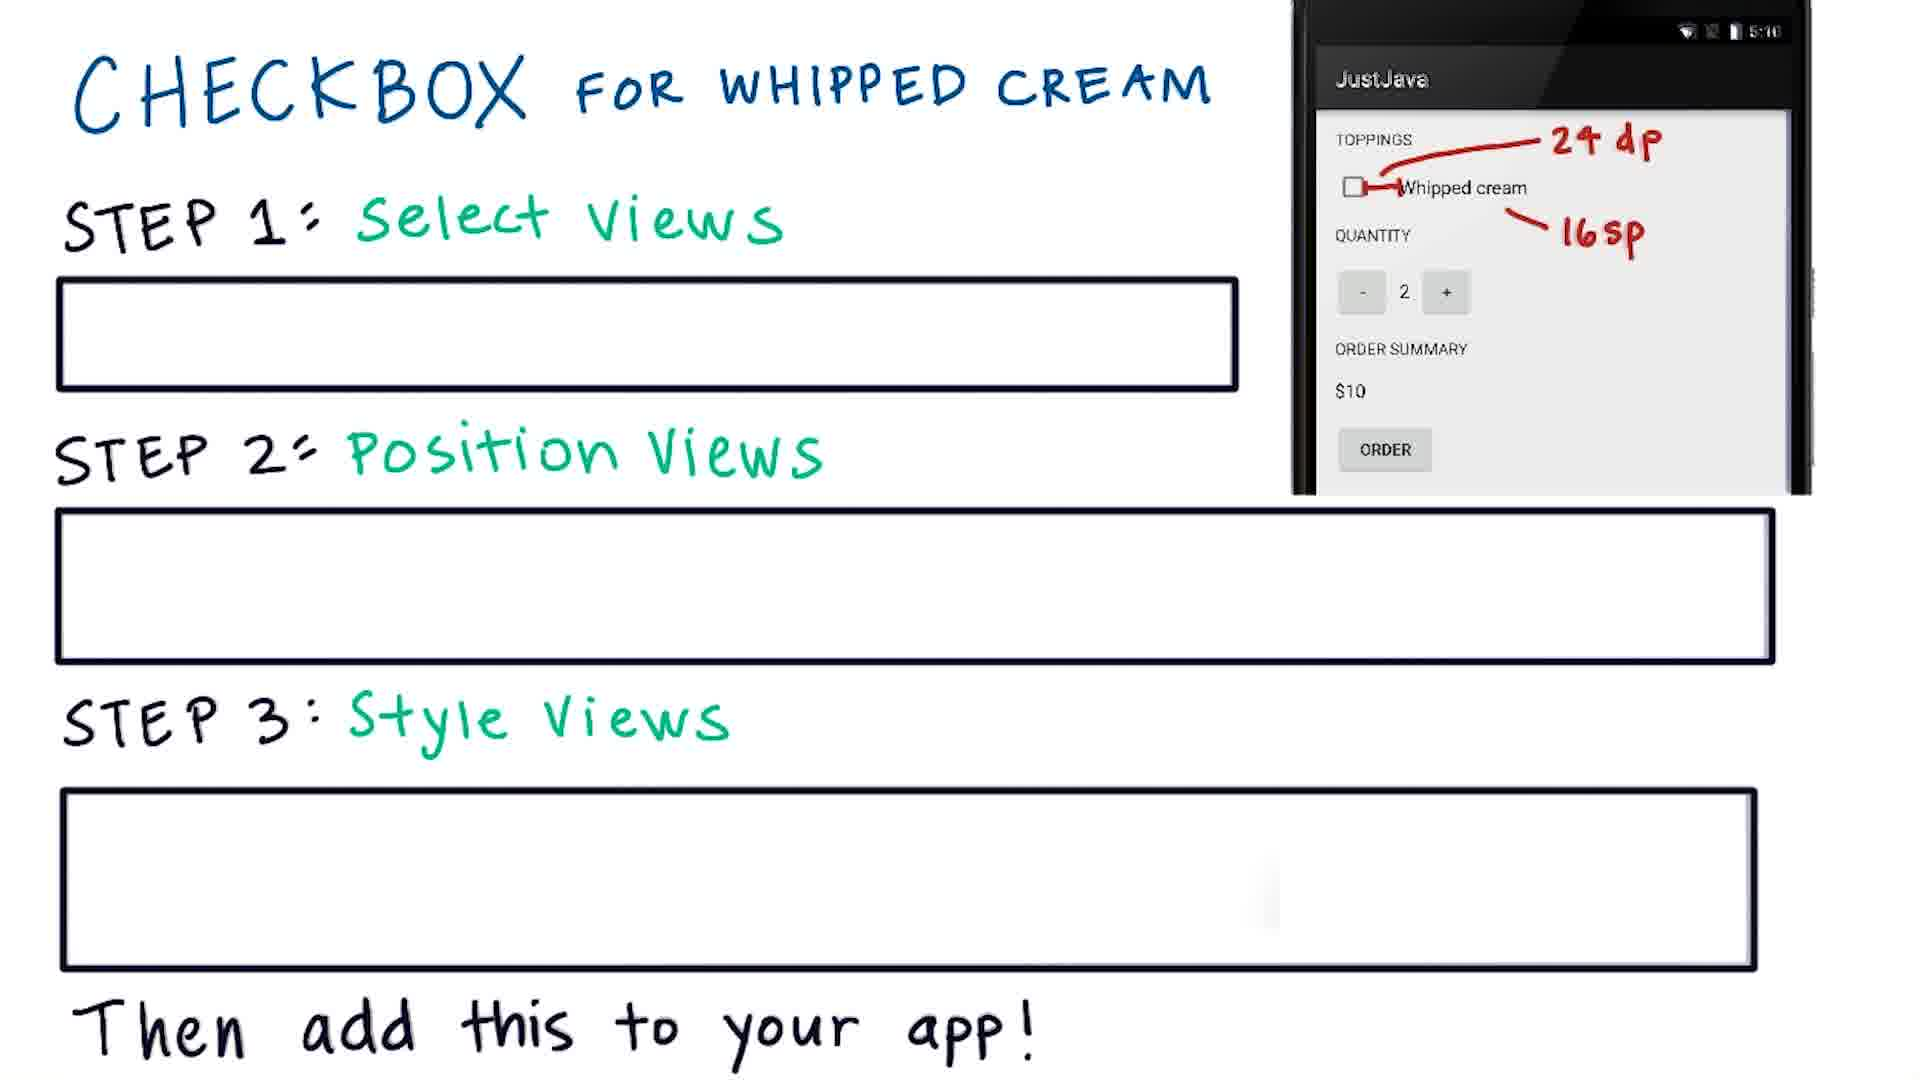 CHECKBOX FOR WHIPPED CREAM
STEP 1: Select Views
STEP 2: Position Views
STEP 3: Style Views
Then add this to your app!
5:16
JustJava
TOPPINGS
24 dp
Whipped cream
16sp
QUANTITY
- 2 +
ORDER SUMMARY
$10
ORDER